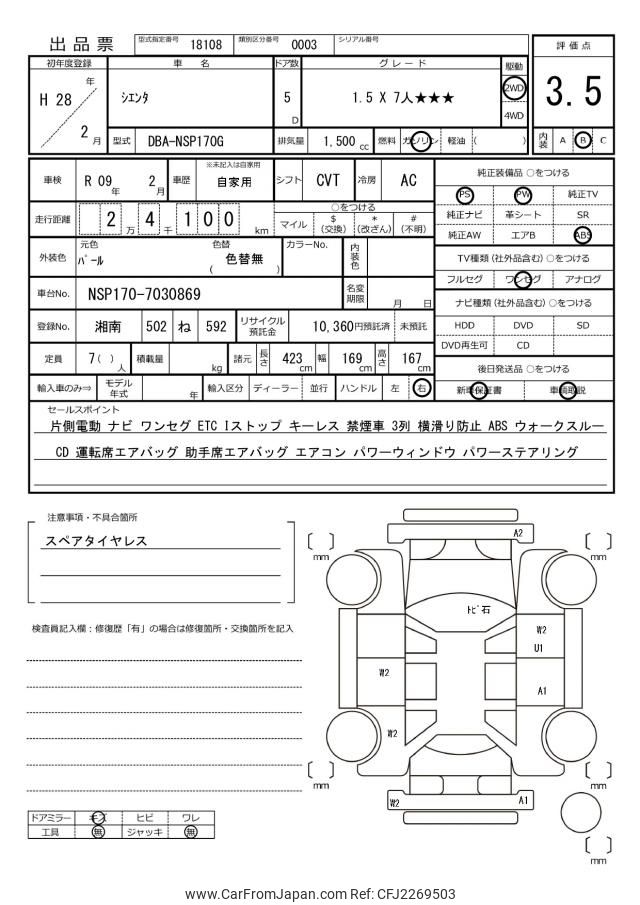 出品票
型式指定番号 18108 類別区分番号 0003 シリアル番号
評価点
3.5
内装 A B C
初年度登録 車名 ドア数 グレード 駆動
H 28 年 2 月
シエンタ
5 D
1.5 X 7人★★★
2WD
4WD
型式 DBA-NSP170G 排気量 1,500 cc 燃料 ガソリン 軽油 ( )
車検 R 09 年 2 月 車歴 ※未記入は自家用 自家用 シフト CVT 冷房 AC
走行距離 2 万 4 千 1 0 0 km
○をつける
マイル $ (交換) * (改ざん) # (不明)
外装色 元色 パール 色替 ( 色替無 ) カラーNo. 内装色
車台No. NSP170-7030869 名変期限 月 日
登録No. 湘南 502 ね 592 リサイクル預託金 10,360円預託済 未預託
定員 7( ) 人 積載量 kg 諸元 長さ 423 cm 幅 169 cm 高さ 167 cm
輸入車のみ⇒ モデル年式 年 輸入区分 ディーラー 並行 ハンドル 左 右
純正装備品 ○をつける
PS PW 純正TV
純正ナビ 革シート SR
純正AW エアB ABS
TV種類(社外品含む) ○をつける
フルセグ ワンセグ アナログ
ナビ種類(社外品含む) ○をつける
HDD DVD SD
DVD再生可 CD
後日発送品 ○をつける
新車保証書 車輌取説
セールスポイント
片側電動 ナビ ワンセグ ETC Iストップ キーレス 禁煙車 3列 横滑り防止 ABS ウォークスルー
CD 運転席エアバッグ 助手席エアバッグ エアコン パワーウィンドウ パワーステアリング
注意事項・不具合箇所
スペアタイヤレス
検査員記入欄：修復歴「有」の場合は修復箇所・交換箇所を記入
ドアミラー キズ ヒビ ワレ
工具 無 ジャッキ 無
A2
[ ] mm
[ ] mm
トビ石
W2
U1
W2
A1
W2
[ ] mm
[ ] mm
W2
A1
[ ] mm
www.CarFromJapan.com Ref: CFJ2269503